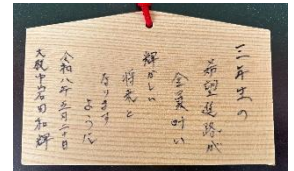 三年生の
希望進路が
全員叶い
輝かしい
将来と
なります
ように
令和八年五月二十日
大阪中 岩田和輝